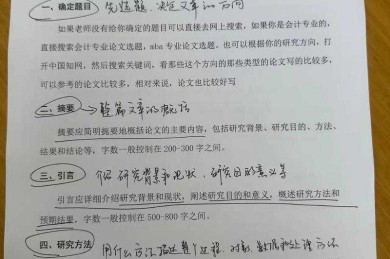 一、确定题目 先选题,决定文章的方向
如果老师没有给你确定的题目可以直接去网上搜索,如果你是会计专业的,
直接搜索会计专业论文选题,mba专业论文选题,也可以根据你的研究方向,打
开中国知网,然后搜索关键词,看那些这个方向的那些类型的论文写的比较多,
可以参考的论文比较多,相对来说,论文也比较好写
二、摘要 整篇文章的概括
摘要应简明扼要地概括论文的主要内容,包括研究背景、研究目的、方法、
结果和结论等,字数一般控制在 200-300 字之间。
三、引言 介绍研究背景和现状,研究目的意义等
引言应详细介绍研究背景和现状,阐述研究目的和意义,概述研究方法和
预期结果,字数一般控制在 500-800 字之间。
四、研究方法 用什么方法